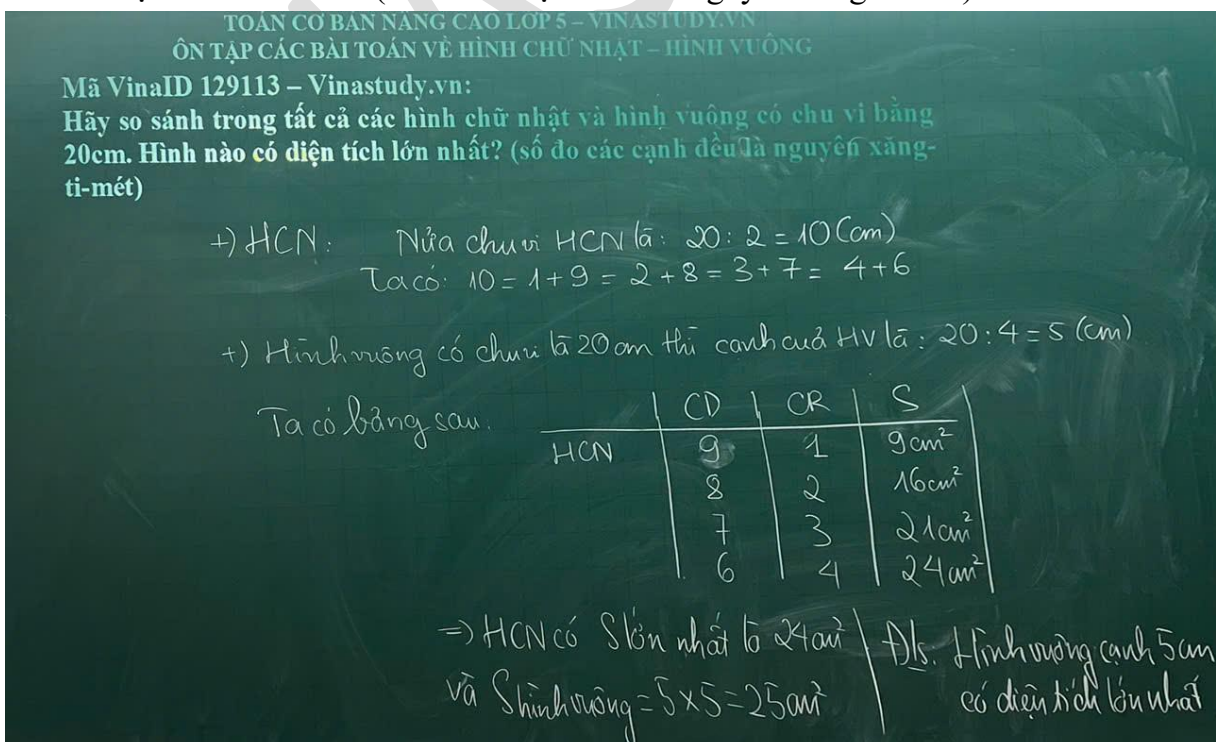 TOÁN CƠ BẢN NÂNG CAO LỚP 5 – VINASTUDY.VN
ÔN TẬP CÁC BÀI TOÁN VỀ HÌNH CHỮ NHẬT – HÌNH VUÔNG
Mã VinaID 129113 – Vinastudy.vn:
Hãy so sánh trong tất cả các hình chữ nhật và hình vuông có chu vi bằng
20cm. Hình nào có diện tích lớn nhất? (số đo các cạnh đều là nguyên xăng-
ti-mét)
+) HCN: Nửa chu vi HCN là: 20 : 2 = 10 (cm)
Ta có: 10 = 1 + 9 = 2 + 8 = 3 + 7 = 4 + 6
+) Hình vuông có chu vi là 20 cm thì cạnh của HV là : 20 : 4 = 5 (cm)
Ta có bảng sau.
CD CR S
HCN 9 1 9cm²
8 2 16cm²
7 3 21cm²
6 4 24cm²
=> HCN có S lớn nhất là 24cm²
và S hình vuông = 5 x 5 = 25cm²
Đ/s. Hình vuông cạnh 5cm
có diện tích lớn nhất